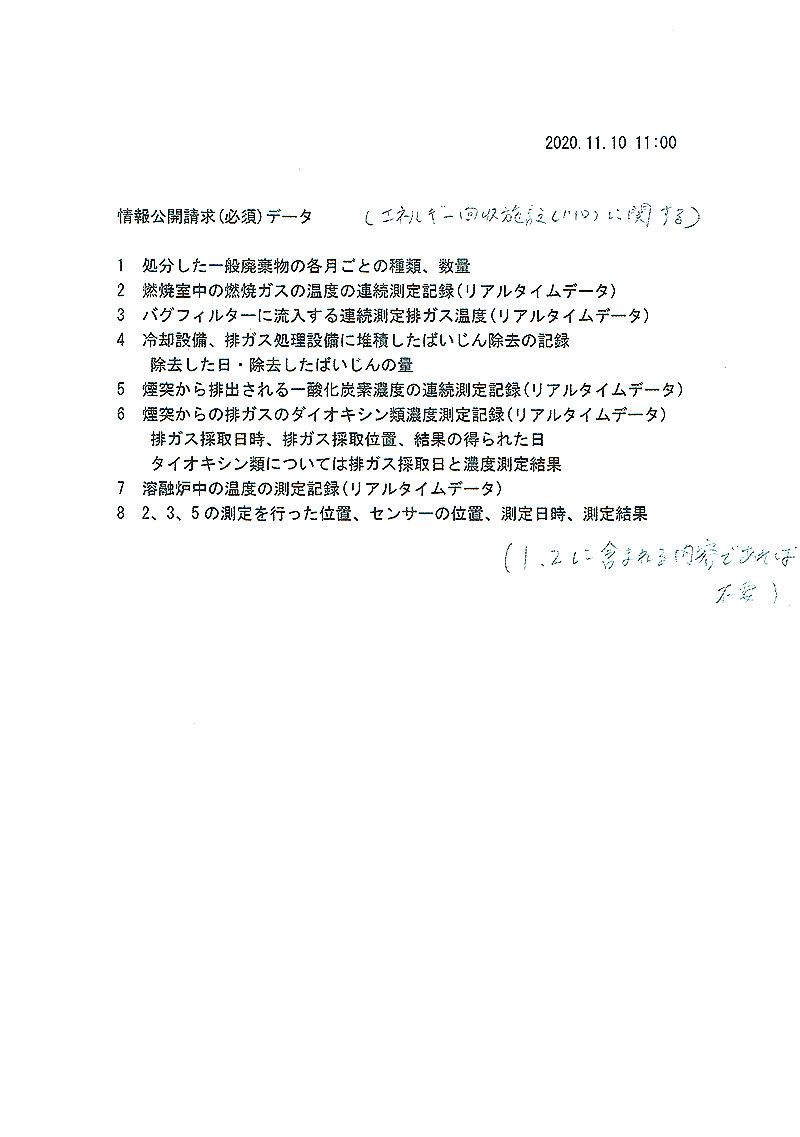 2020.11.10 11:00
情報公開請求(必須)データ (エネルギー回収施設(川口)に関する)
1 処分した一般廃棄物の各月ごとの種類、数量
2 燃焼室中の燃焼ガスの温度の連続測定記録(リアルタイムデータ)
3 バグフィルターに流入する連続測定排ガス温度(リアルタイムデータ)
4 冷却設備、排ガス処理設備に堆積したばいじん除去の記録
除去した日・除去したばいじんの量
5 煙突から排出される一酸化炭素濃度の連続測定記録(リアルタイムデータ)
6 煙突からの排ガスのダイオキシン類濃度測定記録(リアルタイムデータ)
排ガス採取日時、排ガス採取位置、結果の得られた日
タイオキシン類については排ガス採取日と濃度測定結果
7 溶融炉中の温度の測定記録(リアルタイムデータ)
8 2、3、5の測定を行った位置、センサーの位置、測定日時、測定結果
(1、2に含まれる内容であれば
不要)